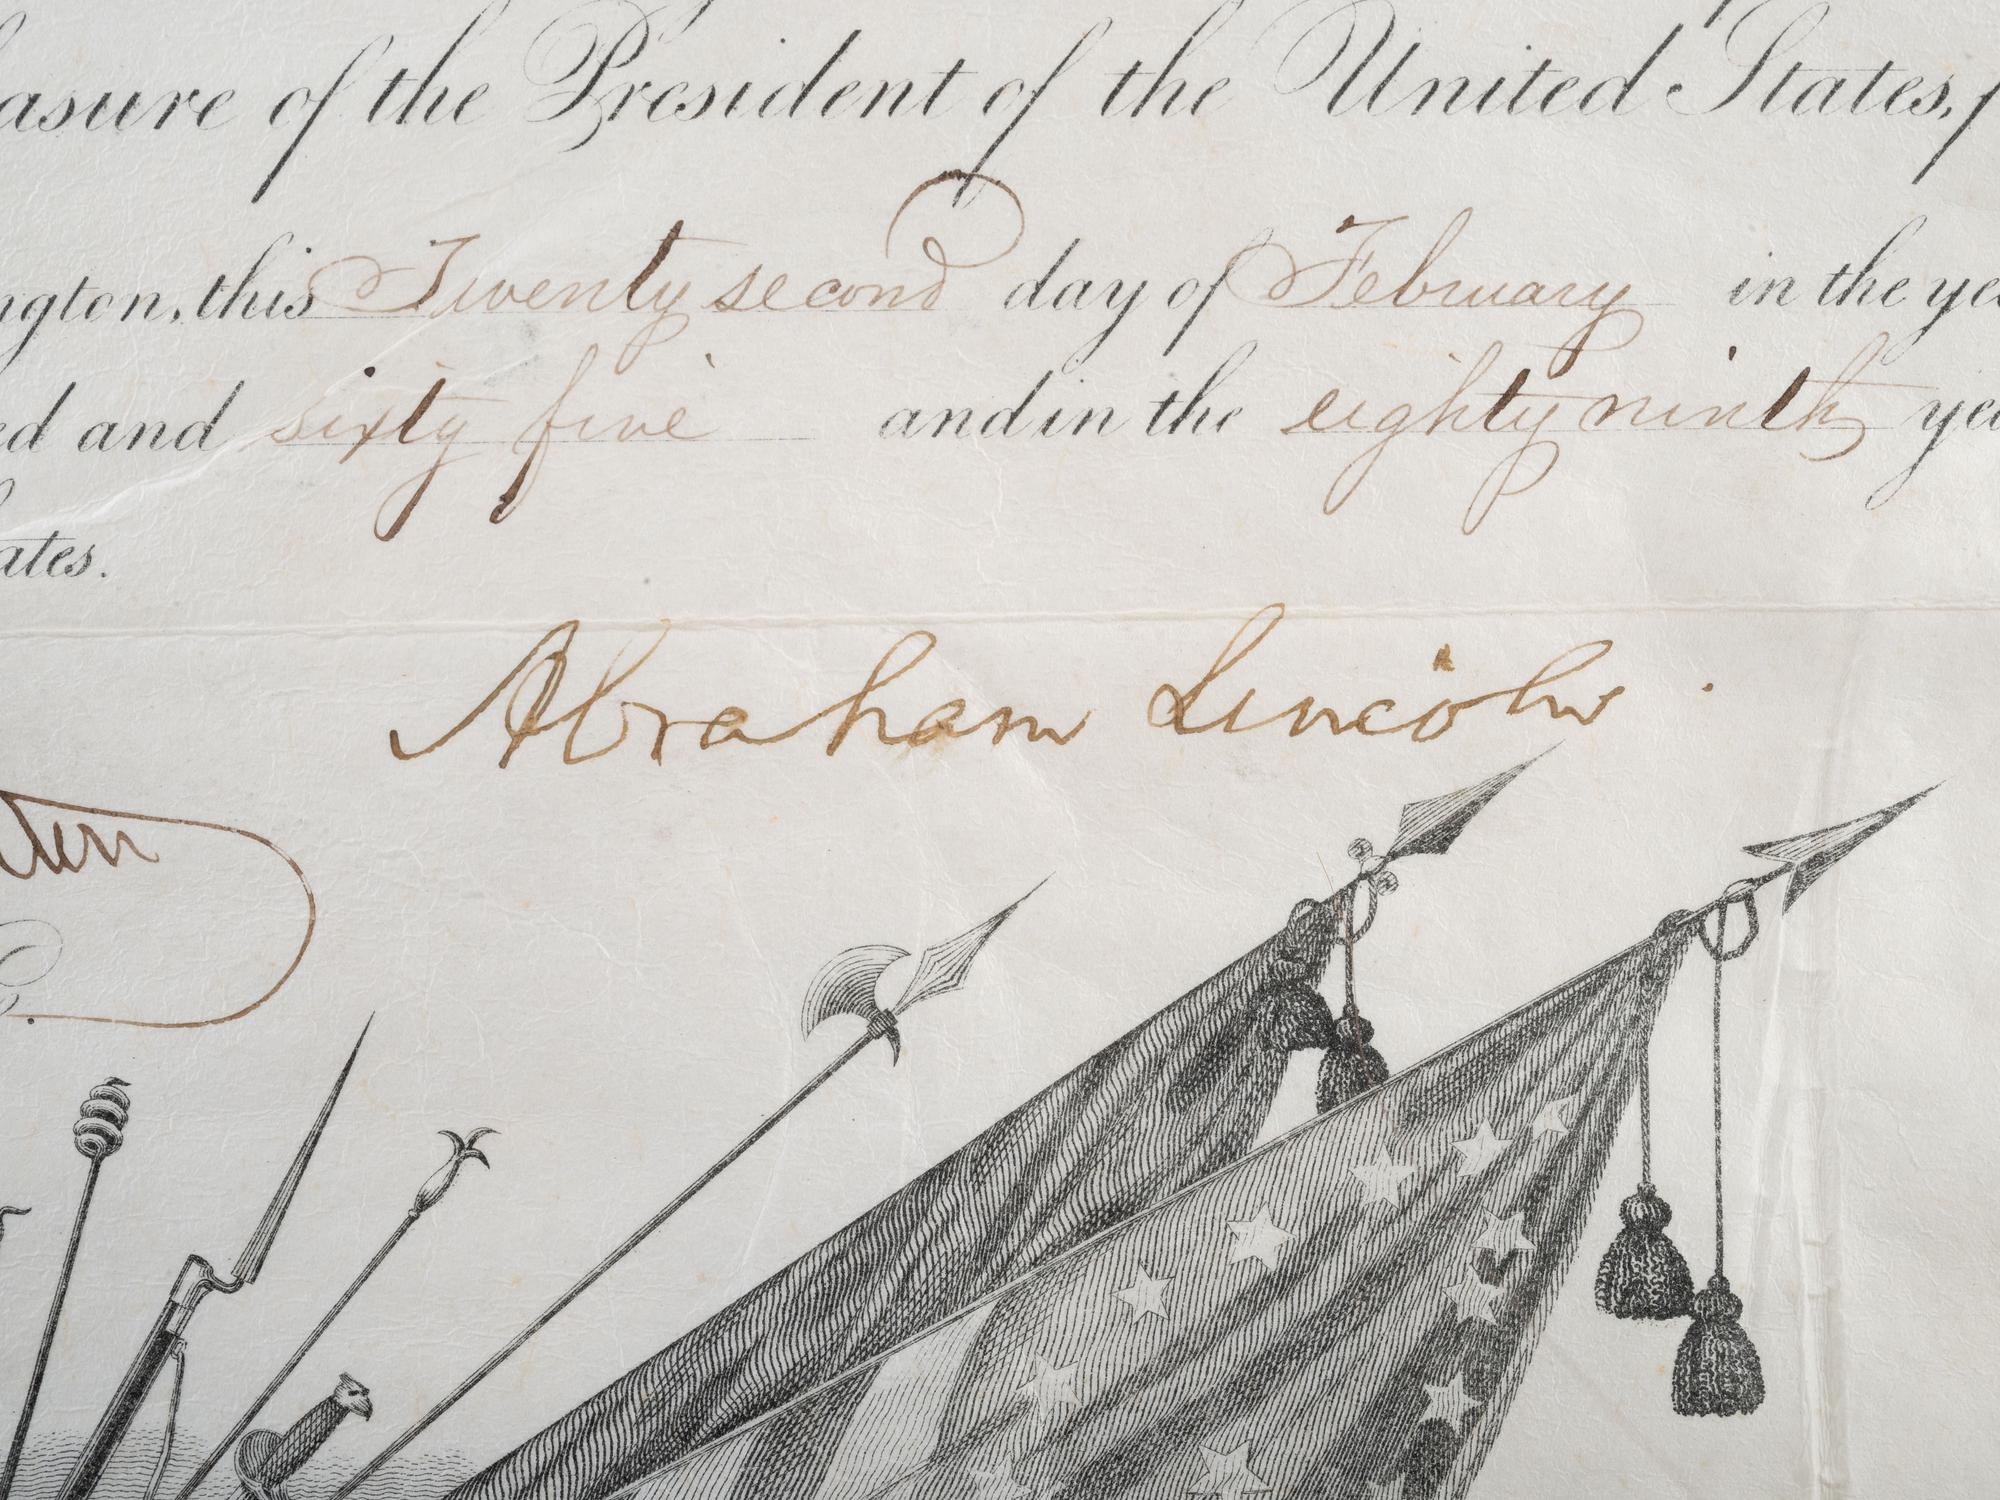 asure of the President of the United States,
ngton, this Twenty second day of February in the ye
ed and sixty five and in the eighty ninth yea
ates.
Abraham Lincoln.